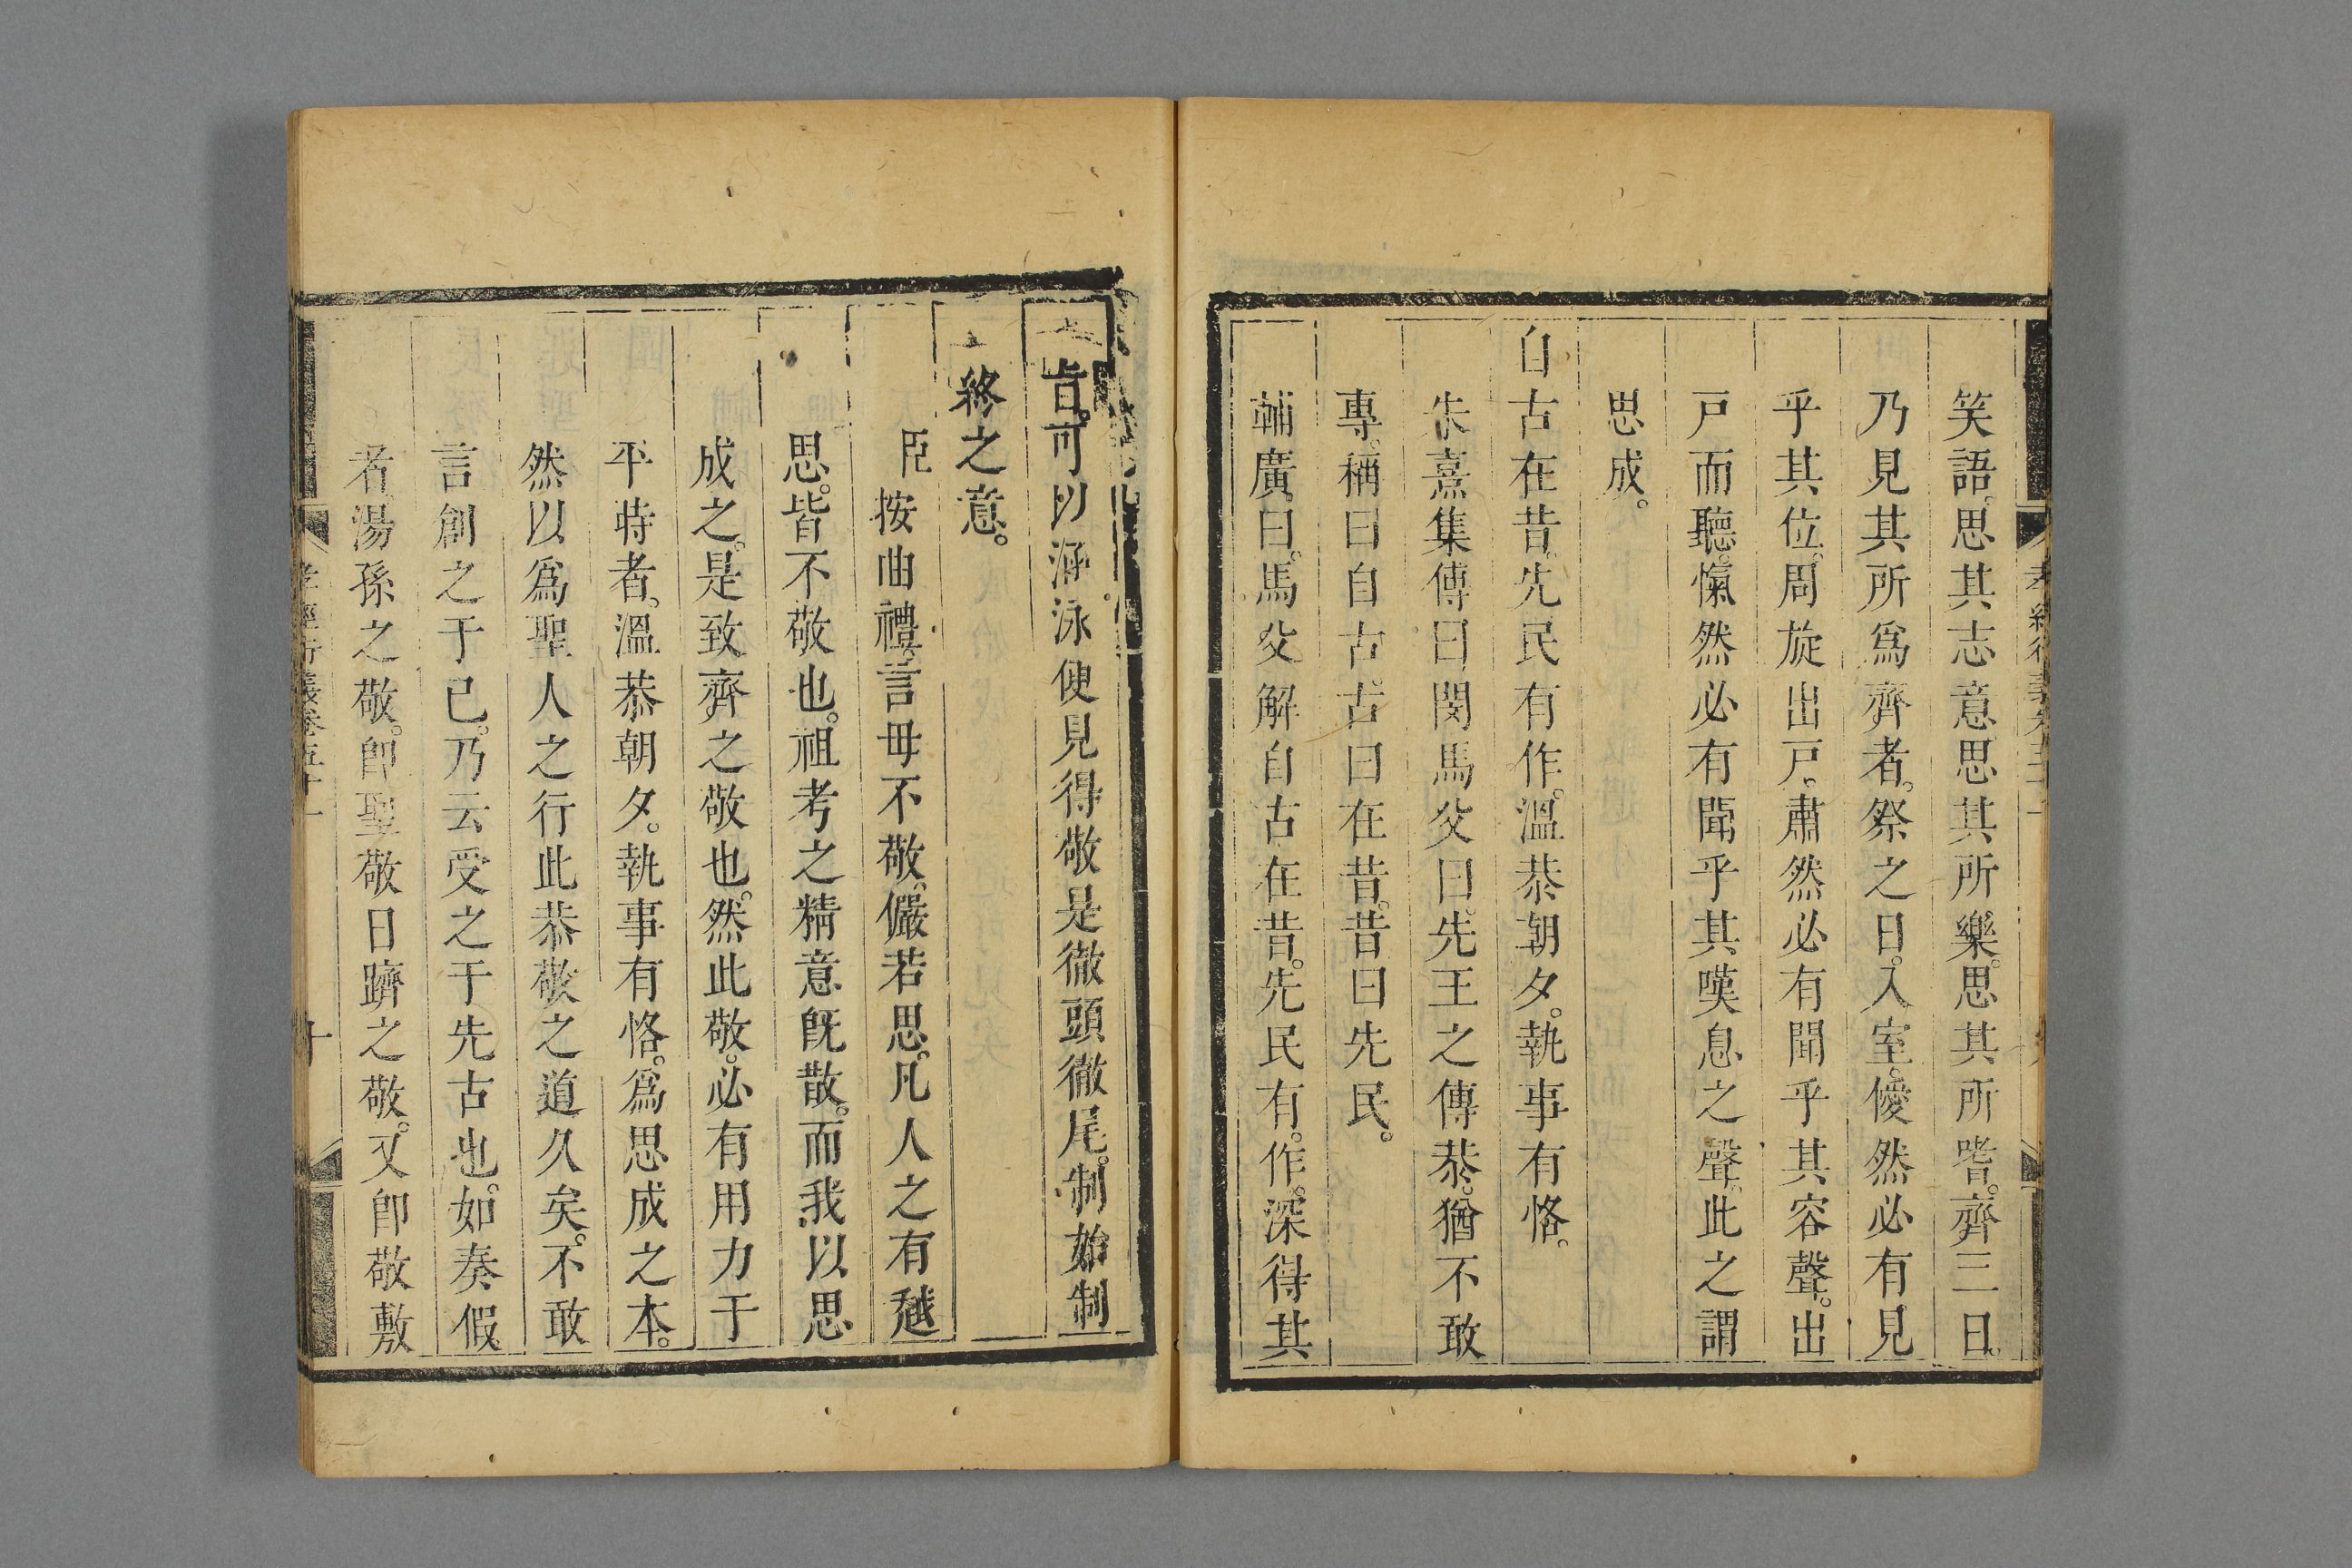 笑語。思其志意。思其所樂。思其所嗜。齊三日。
乃見其所爲齊者。祭之日。入室。僾然必有見
乎其位。周旋出戸。肅然必有聞乎其容聲。出
戸而聽。愾然必有聞乎其嘆息之聲。此之謂
思成。
自古在昔。先民有作。溫恭朝夕。執事有恪。
朱熹集傳曰閔馬父曰。先王之傳恭。猶不敢
專。稱曰自古。古曰在昔。昔曰先民。
輔廣曰。馬父解自古在昔。先民有作。深得其
旨。可以涵泳。便見得敬是徹頭徹尾。制始制
終之意。
臣按曲禮。言毋不敬。儼若思。凡人之有愆
思。皆不敬也。祖考之精意旣散。而我以思
成之。是致齊之敬也。然此敬。必有用力于
平時者。溫恭朝夕。執事有恪。爲思成之本。
然以爲聖人之行此恭敬之道久矣。不敢
言創之于己。乃云受之于先古也。如奏假
者湯孫之敬。卽聖敬日躋之敬。又卽敬敷
孝經衍義卷五十一
十